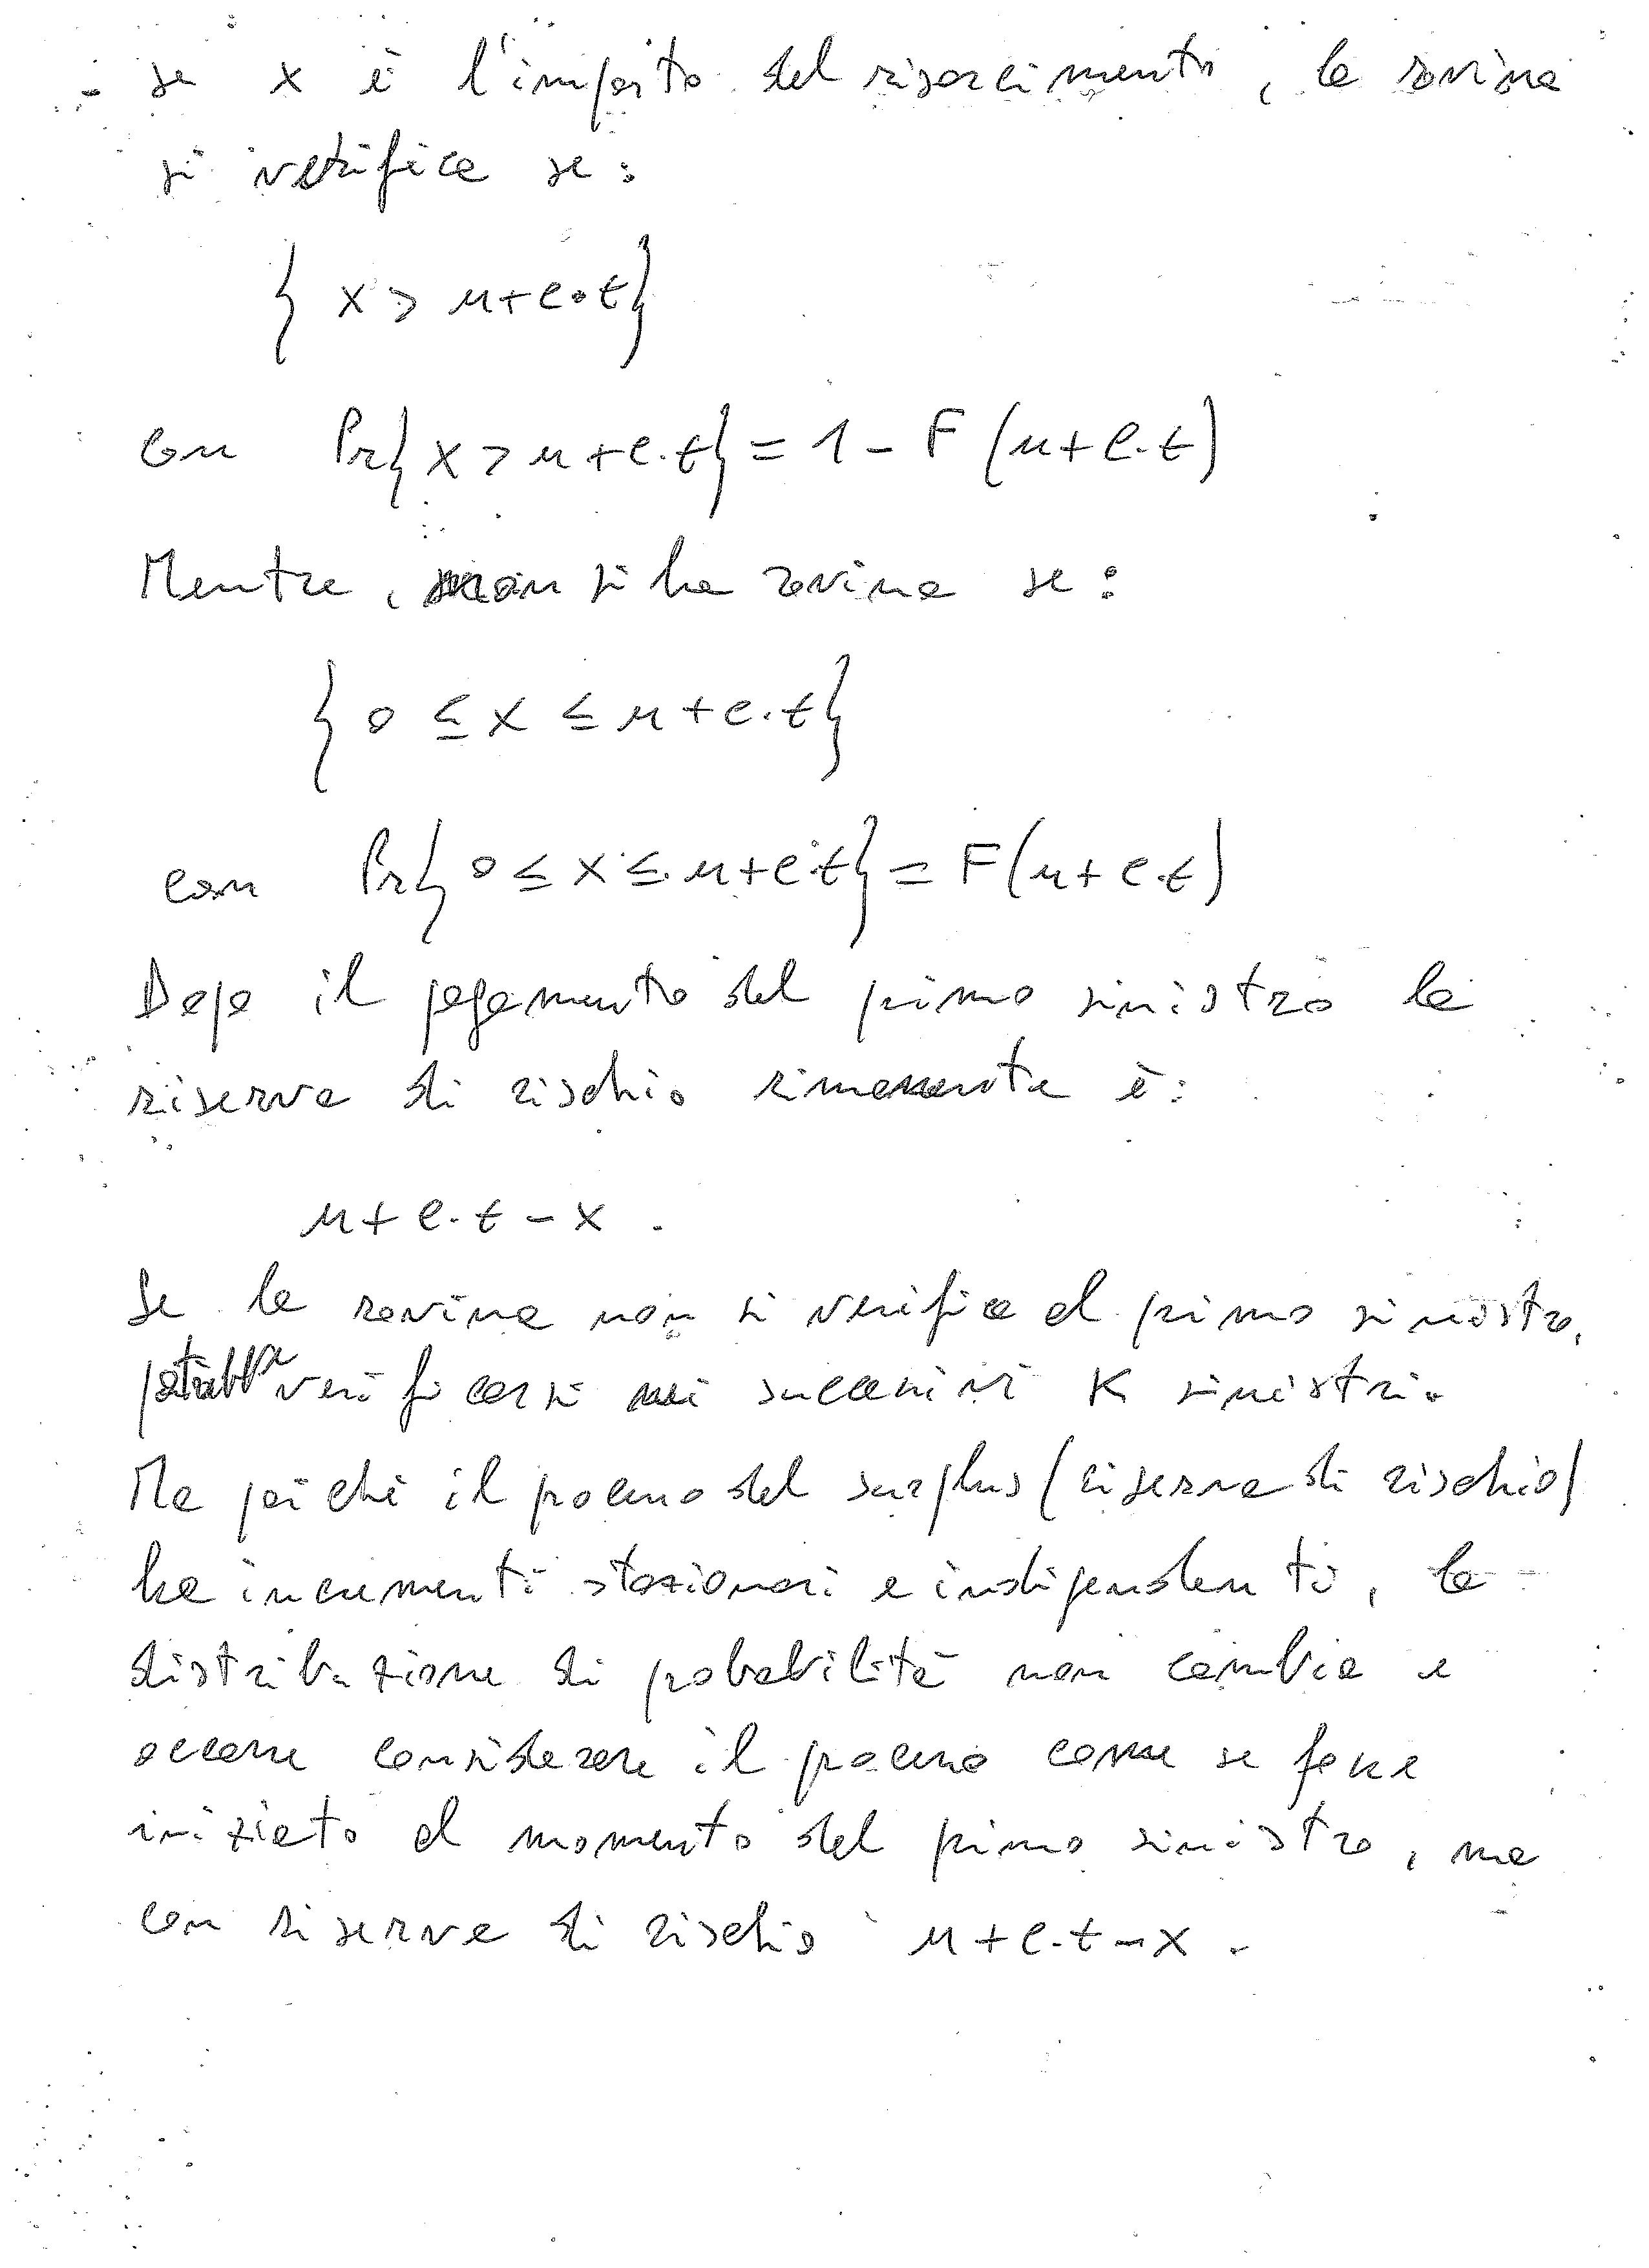 - se x è l'importo del risarcimento, la rovina
si verifica se:
{ x > u+c·t }
con Pr{ x > u+c·t } = 1 - F (u+c·t)
Mentre, non si ha rovina se:
{ 0 ≤ x ≤ u+c·t }
con Pr{ 0 ≤ x ≤ u+c·t } = F(u+c·t)
Dopo il pagamento del primo sinistro la
riserva di rischio rimanente è:
u+c·t - x .
Se la rovina non si verifica al primo sinistro,
potrebbe verificarsi nei successivi K sinistri.
Ma poiché il processo del surplus (riserva di rischio)
ha incrementi stazionari e indipendenti, la
distribuzione di probabilità non cambia e
occorre considerare il processo come se fosse
iniziato al momento del primo sinistro, ma
con riserva di rischio u+c·t-x .